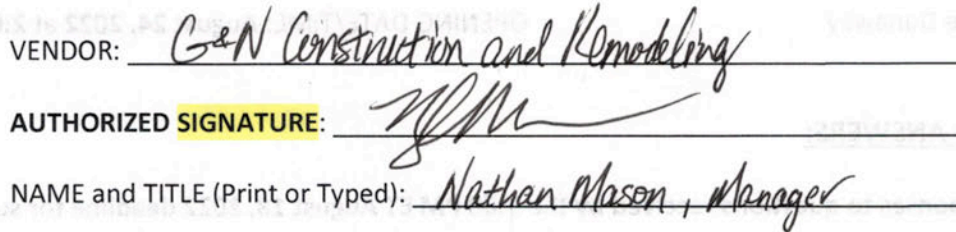 VENDOR: G&N Construction and Remodeling
AUTHORIZED SIGNATURE:
NAME and TITLE (Print or Typed): Nathan Mason, Manager